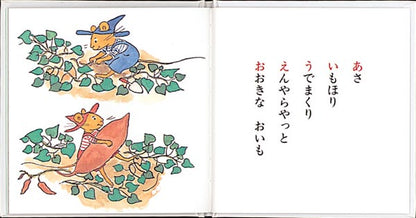 あさ
いもほり
うでまくり
えんやらやっと
おおきな　おいも